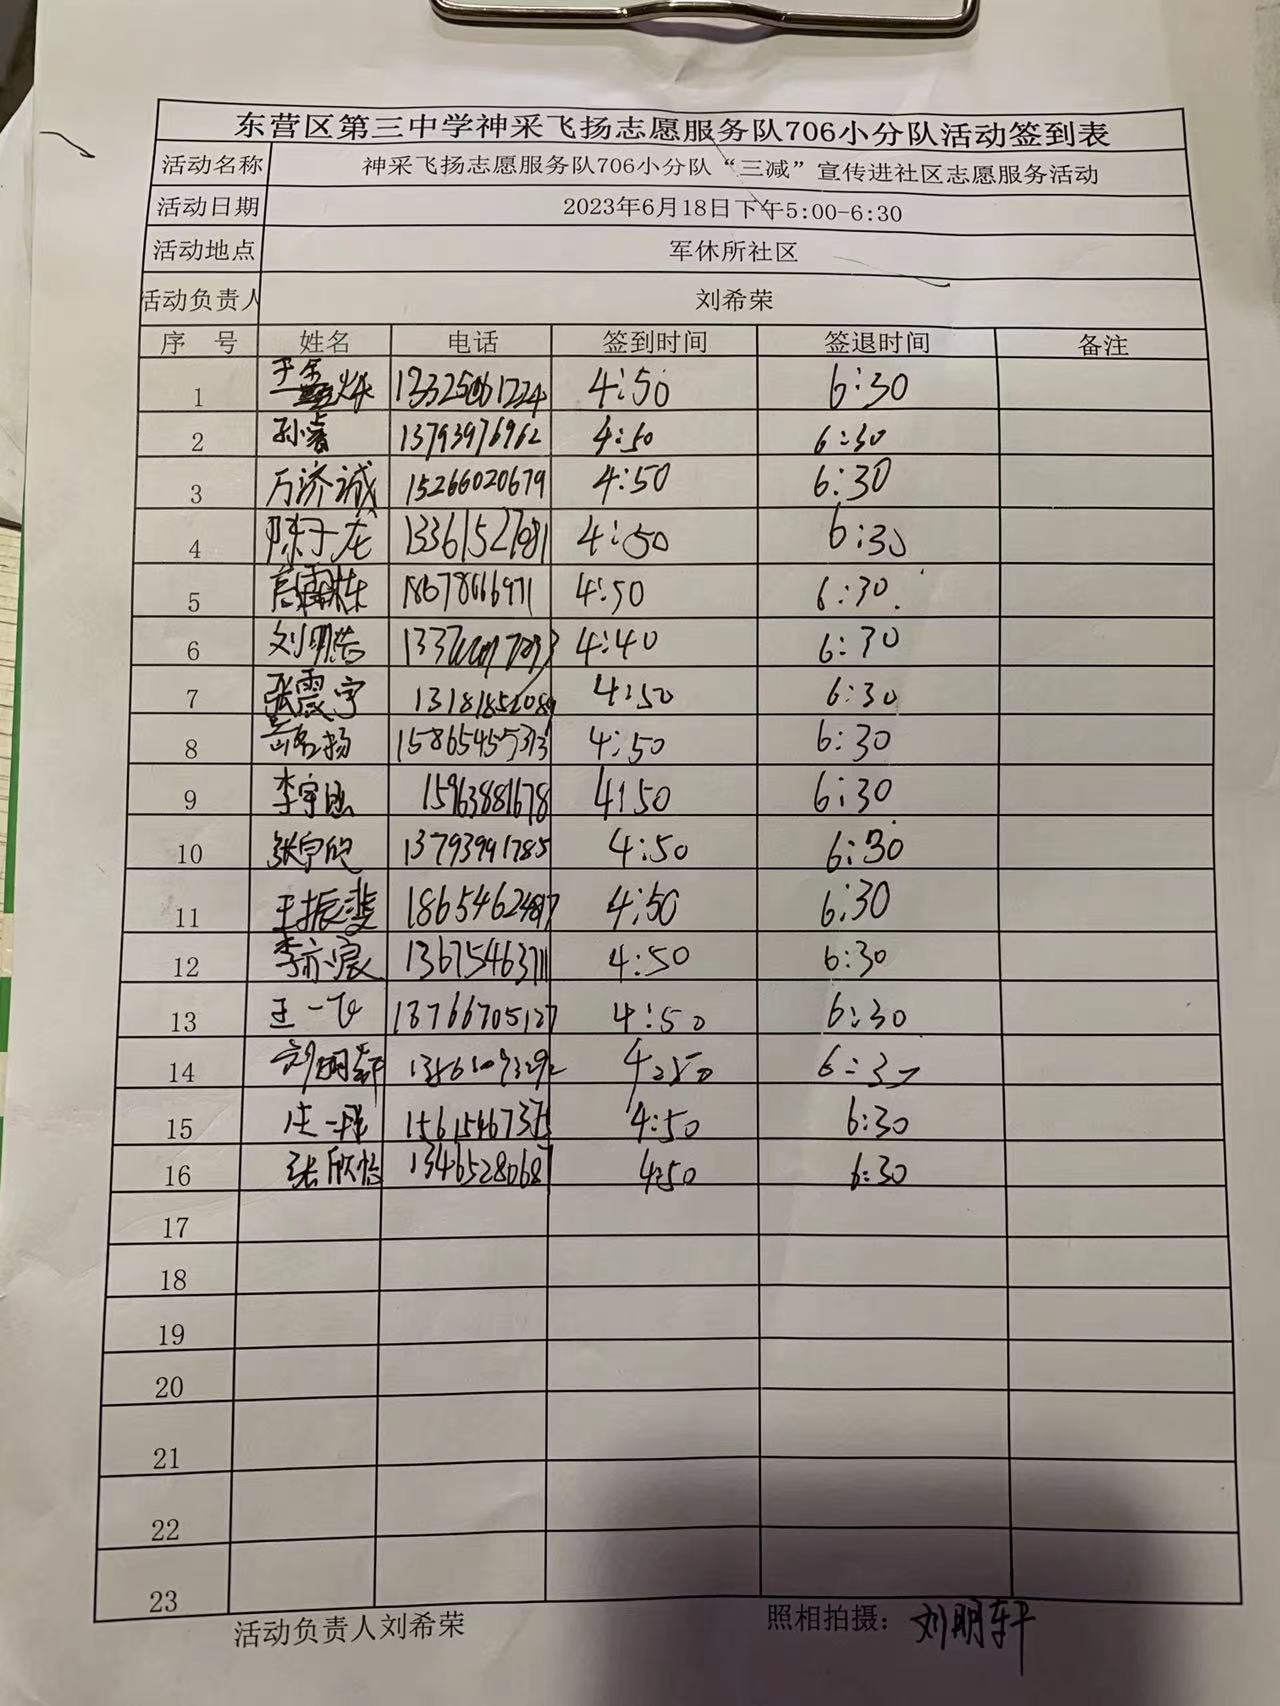 东营区第三中学神采飞扬志愿服务队706小分队活动签到表
活动名称 神采飞扬志愿服务队706小分队“三减”宣传进社区志愿服务活动
活动日期 2023年6月18日下午5:00-6:30
活动地点 军休所社区
活动负责人 刘希荣
序 号 姓名 电话 签到时间 签退时间 备注
1 4:50 6:30
2 孙睿 13793976962 4:50 6:30
3 万济诚 15266020679 4:50 6:30
4 陈子龙 4:50 6:30
5 4:50 6:30
6 刘明浩 4:40 6:30
7 张震宇 4:50 6:30
8 4:50 6:30
9 李宇涵 15963881678 4:50 6:30
10 张宇欣 13793991785 4:50 6:30
11 王振斐 4:50 6:30
12 李亦宸 13675463711 4:50 6:30
13 王一飞 4:50 6:30
14 刘明轩 4:50 6:30
15 4:50 6:30
16 张欣怡 13465280687 4:50 6:30
17
18
19
20
21
22
23
活动负责人刘希荣 照相拍摄：刘明轩